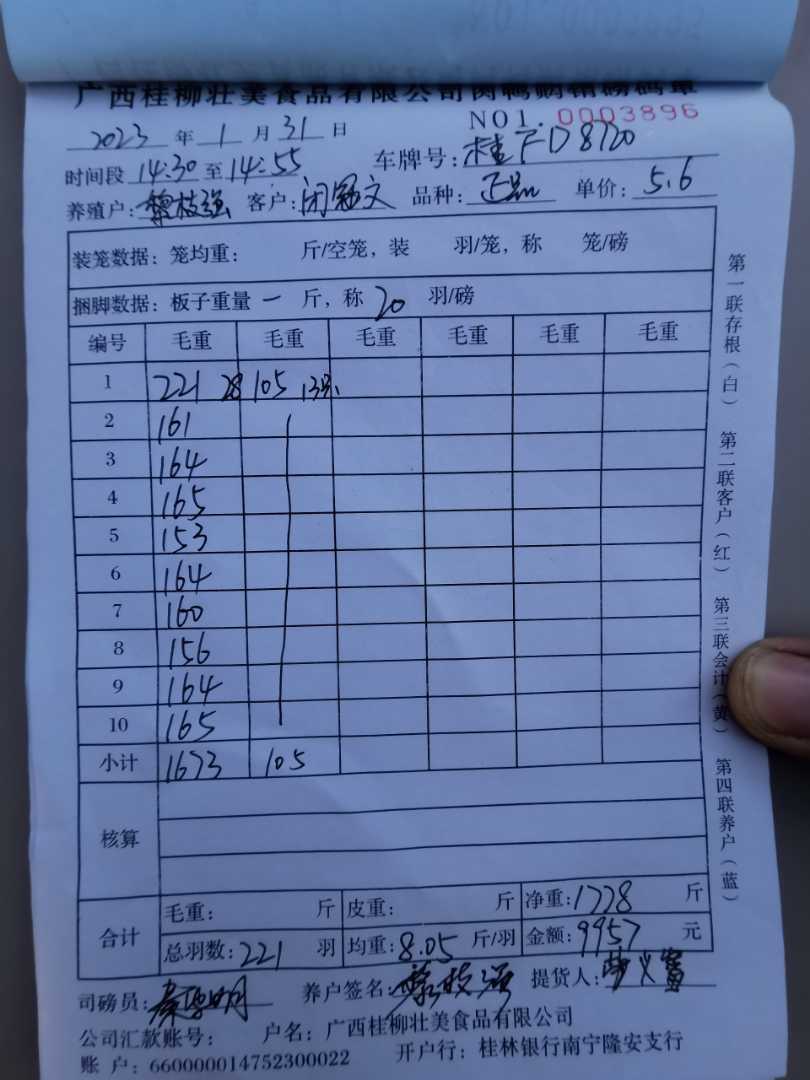 广西桂柳壮美食品有限公司肉鸭购销磅码单
NO1. 0003896
2023 年 1 月 31 日
时间段 14:30 至 14:55 车牌号: 桂FD8720
养殖户: 黎枝强 客户: 闭冠文 品种: 正品 单价: 5.6
装笼数据: 笼均重: 斤/空笼, 装 羽/笼, 称 笼/磅
捆脚数据: 板子重量 一 斤, 称 20 羽/磅
编号 毛重 毛重 毛重 毛重 毛重 毛重
1 221 28 105 13只
2 161
3 164
4 165
5 153
6 164
7 160
8 156
9 164
10 165
小计 1673 105
核算
合计 毛重: 斤 皮重: 斤 净重: 1778 斤
总羽数: 221 羽 均重: 8.05 斤/羽 金额: 9957 元
司磅员: 养户签名: 黎枝强 提货人:
公司汇款账号: 户名: 广西桂柳壮美食品有限公司
账 户: 660000014752300022 开户行: 桂林银行南宁隆安支行
第一联存根(白) 第二联客户(红) 第三联会计(黄) 第四联养户(蓝)